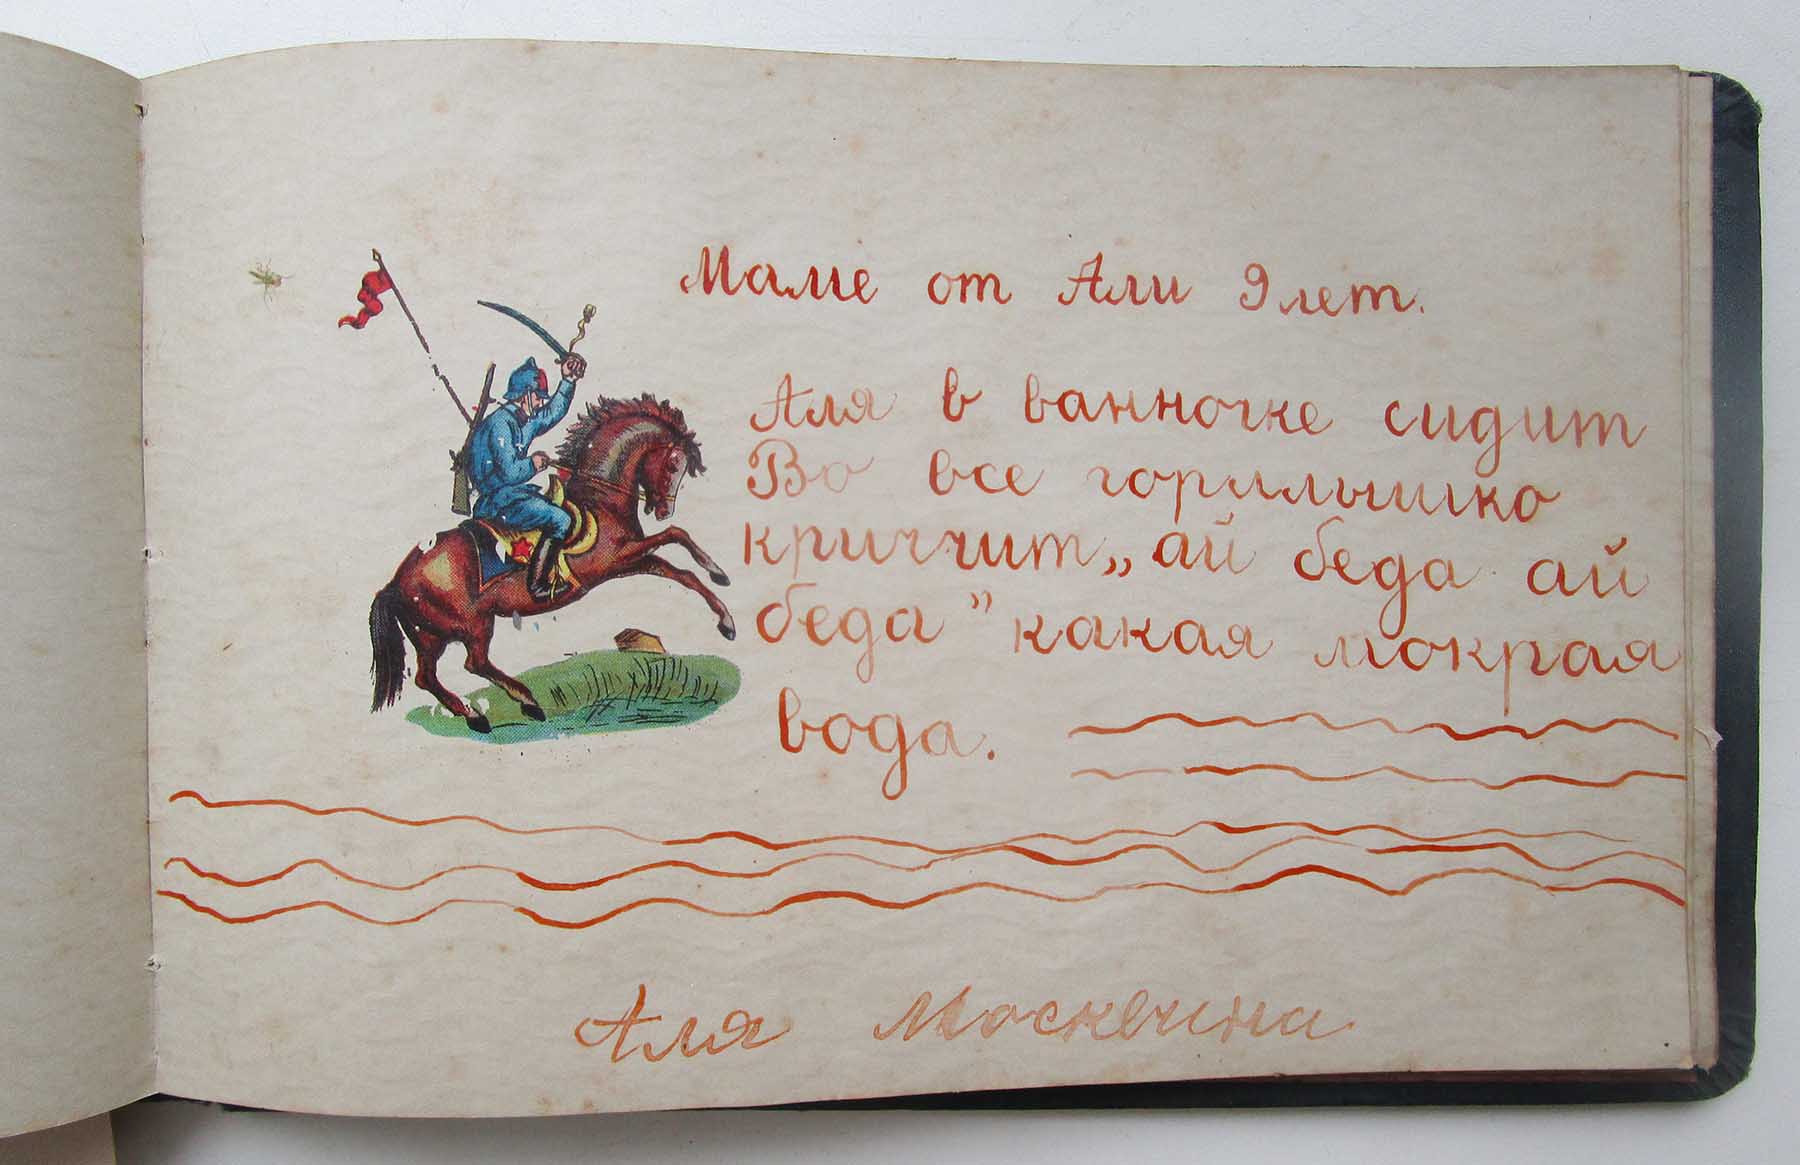 Маме от Али 9 лет.
Аля в ванночке сидит
Во все горллышко
криччит „ай беда ай
беда” какая мокрая
вода.
Аля Москвина